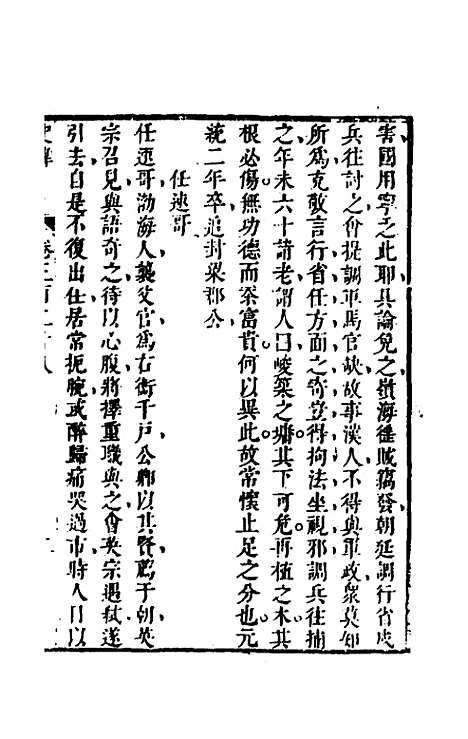 害國用寧之此耶具論免之嶺海徭賊竊發朝廷調行省戍
兵往討之會提調軍馬官缺故事漢人不得與軍政衆莫知
所爲克敬言行省任方面之寄豈得拘法坐視邪調兵往捕
之年未六十請老謂人曰峻築之墉其下可危再植之木其
根必傷無功德而忝富貴何以異此故常懷止足之分也元
統二年卒追封梁郡公
任速哥
任速哥渤海人襲父官爲右衛千戸公卿以其賢薦于朝英
宗召見與語奇之待以心腹將擇重職與之會英宗遇弑遂
引去自是不復出仕居常扼腕或醉歸痛哭過市時人目以
卷三百二十八